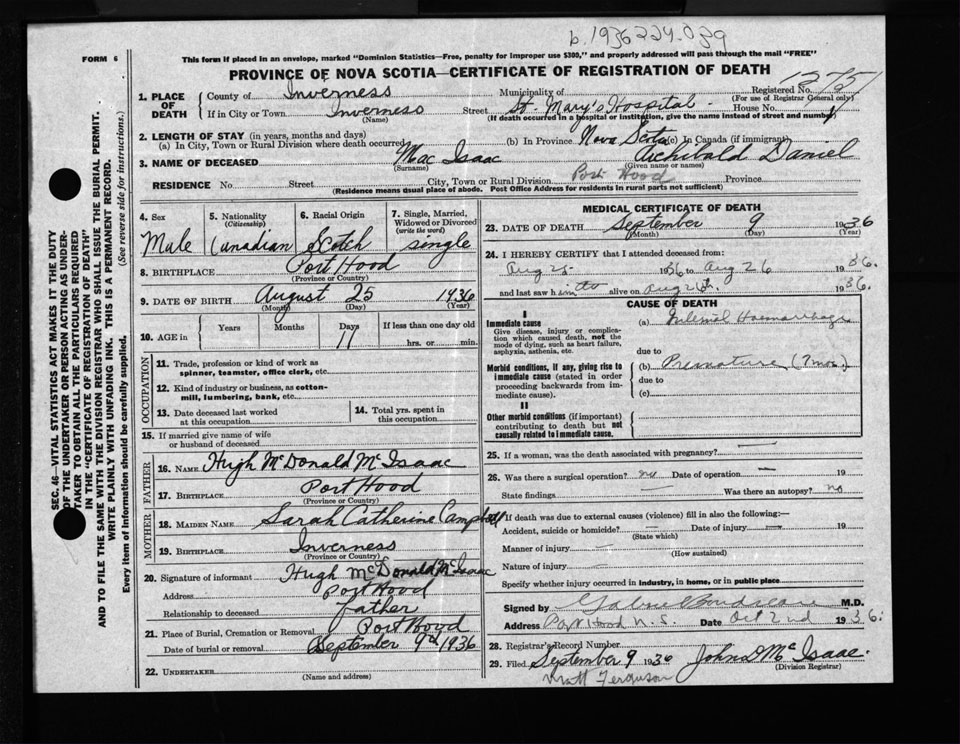 b. 1936 224.029
FORM 6
This form if placed in an envelope, marked "Dominion Statistics—Free, penalty for improper use $300," and properly addressed will pass through the mail "FREE"
PROVINCE OF NOVA SCOTIA—CERTIFICATE OF REGISTRATION OF DEATH
SEC. 46—VITAL STATISTICS ACT MAKES IT THE DUTY
OF THE UNDERTAKER OR PERSON ACTING AS UNDER-
TAKER TO OBTAIN ALL THE PARTICULARS REQUIRED
IN THE "CERTIFICATE OF REGISTRATION OF DEATH"
AND TO FILE THE SAME WITH THE DIVISION REGISTRAR WHO SHALL ISSUE THE BURIAL PERMIT.
WRITE PLAINLY WITH UNFADING INK. THIS IS A PERMANENT RECORD.
Every item of Information should be carefully supplied. (See reverse side for instructions.)
1. PLACE OF DEATH
County of Inverness Municipality of Registered No. 12751
(For use of Registrar General only)
If in City or Town Inverness Street St. Mary's Hospital House No.
(Name) (If death occurred in a hospital or institution, give the name instead of street and number)
2. LENGTH OF STAY (in years, months and days)
(a) In City, Town or Rural Division where death occurred (b) In Province Nova Scotia (c) In Canada (if immigrant)
3. NAME OF DECEASED Mac Isaac Archibald Daniel
(Surname) (Given name or names)
RESIDENCE No. Street City, Town or Rural Division Port Hood Province
(Residence means usual place of abode. Post Office Address for residents in rural parts not sufficient)
4. Sex Male
5. Nationality (Citizenship) Canadian
6. Racial Origin Scotch
7. Single, Married, Widowed or Divorced (write the word) single
8. BIRTHPLACE Port Hood
(Province or Country)
9. DATE OF BIRTH August 25 1936
(Month) (Day) (Year)
10. AGE in Years Months Days 11 If less than one day old hrs. or min.
OCCUPATION
11. Trade, profession or kind of work as spinner, teamster, office clerk, etc.
12. Kind of industry or business, as cotton-mill, lumbering, bank, etc.
13. Date deceased last worked at this occupation
14. Total yrs. spent in this occupation
15. If married give name of wife or husband of deceased
FATHER
16. NAME Hugh McDonald McIsaac
17. BIRTHPLACE Port Hood
(Province or Country)
MOTHER
18. MAIDEN NAME Sarah Catherine Campbell
19. BIRTHPLACE Inverness
(Province or Country)
20. Signature of informant Hugh McDonald McIsaac
Address Port Hood
Relationship to deceased father
21. Place of Burial, Cremation or Removal Port Hood
Date of burial or removal September 9th 1936
22. UNDERTAKER
(Name and address)
MEDICAL CERTIFICATE OF DEATH
23. DATE OF DEATH September 9 1936
(Month) (Day) (Year)
24. I HEREBY CERTIFY that I attended deceased from:
Aug 25 1936 to Aug 26 1936.
and last saw h alive on Aug 26th, 1936.
CAUSE OF DEATH
I
Immediate cause
Give disease, injury or complication which caused death, not the mode of dying, such as heart failure, asphyxia, asthenia, etc.
(a) Internal Haemorrhage
due to
Morbid conditions, if any, giving rise to immediate cause (stated in order proceeding backwards from immediate cause).
(b) Premature (7 mos.)
due to
(c)
II
Other morbid conditions (if important) contributing to death but not causally related to immediate cause.
25. If a woman, was the death associated with pregnancy? —
26. Was there a surgical operation? no Date of operation — 19
State findings — Was there an autopsy? no
27. If death was due to external causes (violence) fill in also the following:—
Accident, suicide or homicide? — Date of injury — 19
(State which)
Manner of injury —
(How sustained)
Nature of injury —
Specify whether injury occurred in industry, in home, or in public place
Signed by Gabriel Boudreau M.D.
Address Port Hood N.S. Date Oct 2nd 1936.
28. Registrar's Record Number
29. Filed September 9 1936 John D McIsaac
(Division Registrar)
Matt Ferguson